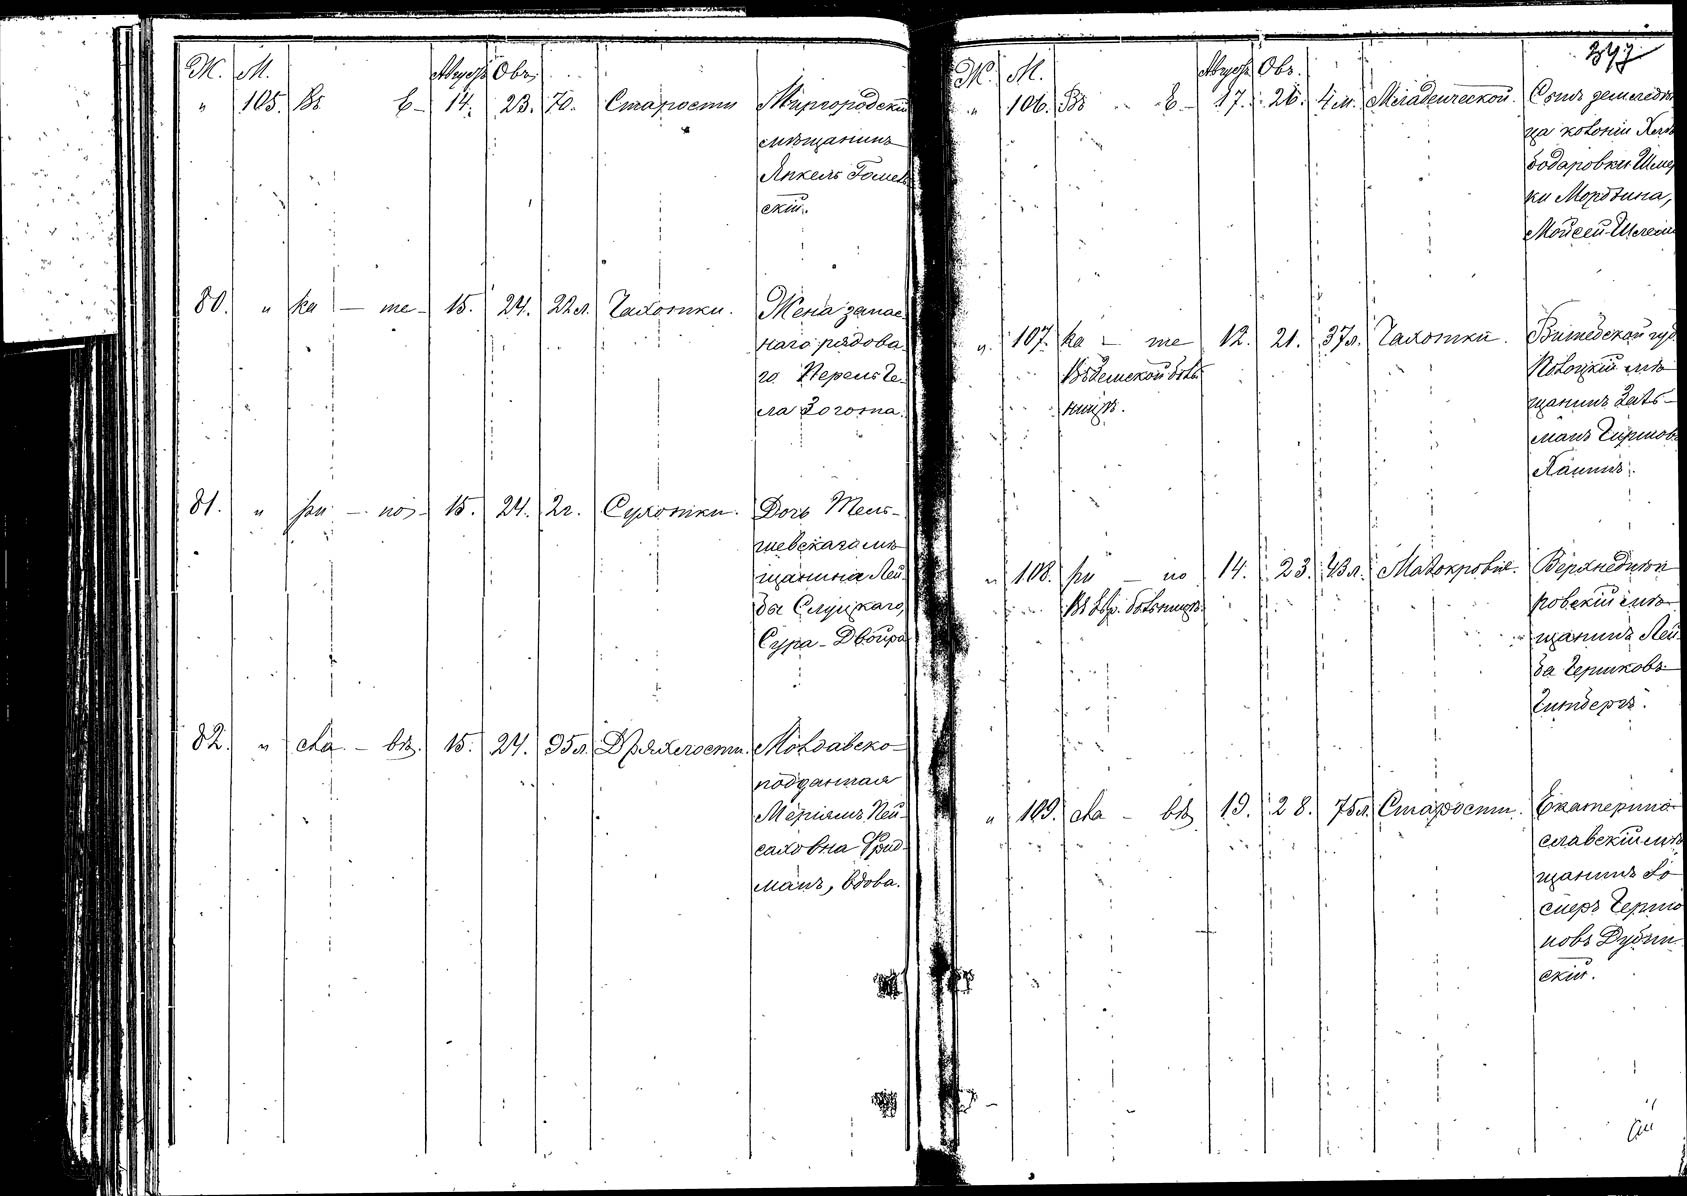 Ж. М. Августъ Овъ
" 105. Въ Е- 14. 23. 70. Старости Миргородскій
мѣщанинъ
Янкель Гомель
скій.
80. " ка — те- 15. 24. 22 л. Чахотки. Жена запас
наго рядова-
го Перель Ге-
ла Золота.
81. " ри — но- 15. 24. 2 г. Сухотки. Дочь Тель-
шевскаго мѣ
щанина Лей-
бы Слуцкаго,
Сура-Двойра
82. " сла — въ. 15. 24. 95 л. Дряхлости. Молдавско-
подданная
Меріямъ Пей-
саховна Фрид-
манъ, вдова.
347
Ж. М. Августъ Овъ.
" 106. Въ Е- 17. 26. 4 м. Младенческой. Сынъ земледѣль
ца колоніи Хлѣ
бодаровки Шмер
ки Мордхина,
Мойсей-Шлема
" 107. ка — те 12. 21. 37 л. Чахотки. Витебской губ.
Въ Земской боль- Полоцкій мѣ
ницѣ. щанинъ Зал-
манъ
Хаинъ.
" 108. ри — но 14. 23. 43 л. Малокровіе. Верхнеднѣп
Въ Евр. больницѣ. ровскій мѣ-
щанинъ Лей-
ба Гершковъ
Гинзбергъ.
" 109. сла — въ 19. 28. 75 л. Старости. Екатерино-
славскій мѣ
щанинъ Ео
сперъ Гершо
новъ Дубин-
скій.